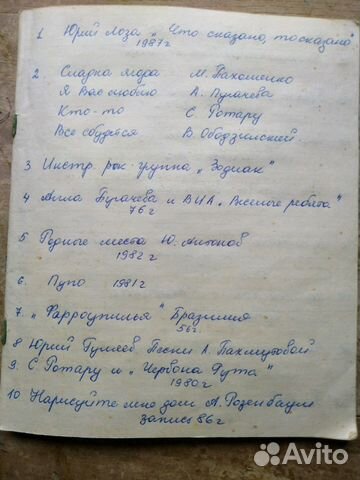 1 Юрий Лоза „Что сказано, то сказано"
1987г
2. Сладка ягода М. Пахоменко
Я Вас люблю А. Пугачева
Кто-то С. Ротару
Все сбудется В. Ободзинский.
3 Инстр. рок-группа „Зодиак"
4 Алла Пугачева и ВИА „Веселые ребята"
76г
5 Родные места Ю. Антонов
1982г
6. Пупо 1981г
7. „Фарроупилья" Бразилия
56г.
8 Юрий Гуляев Песни А. Пахмутовой
9. С Ротару и „Червона Рута"
1980г
10 Нарисуйте мне дом А. Розенбаум
запись 86г
Avito